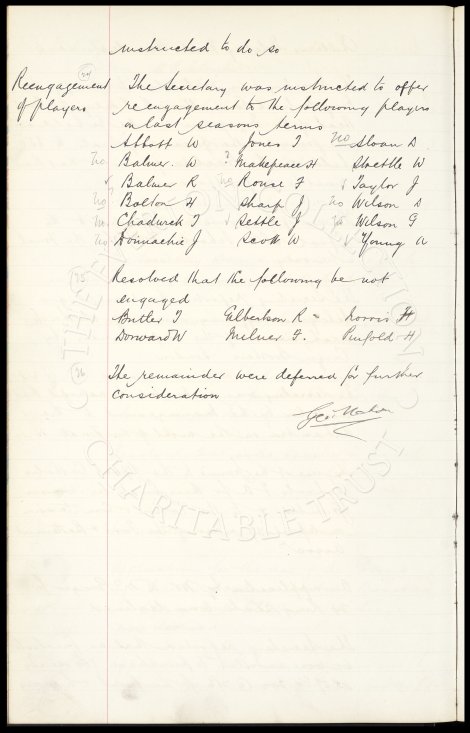 instructed to do so
74
Reengagement of players
The Secretary was instructed to offer
reengagement to the following players
on last seasons terms
Abbott W Jones T no Sloan D
no Balmer. W ? Makepeace H Stoettle W
√ Balmer R no Rouse F √ Taylor J
no? Bolton H Sharp J no Wilson D
no Chadwick T √ Settle J Wilson G
no Donnachie J Scott W √ Young A
75
Resolved that the following be not
engaged
Butler T Gilbertson R Norris H
Dorward W Milner F. Pinfold H
76
The remainder were deferred for further
consideration
Geo. Mahon
THE EVERTON COLLECTION
CHARITABLE TRUST